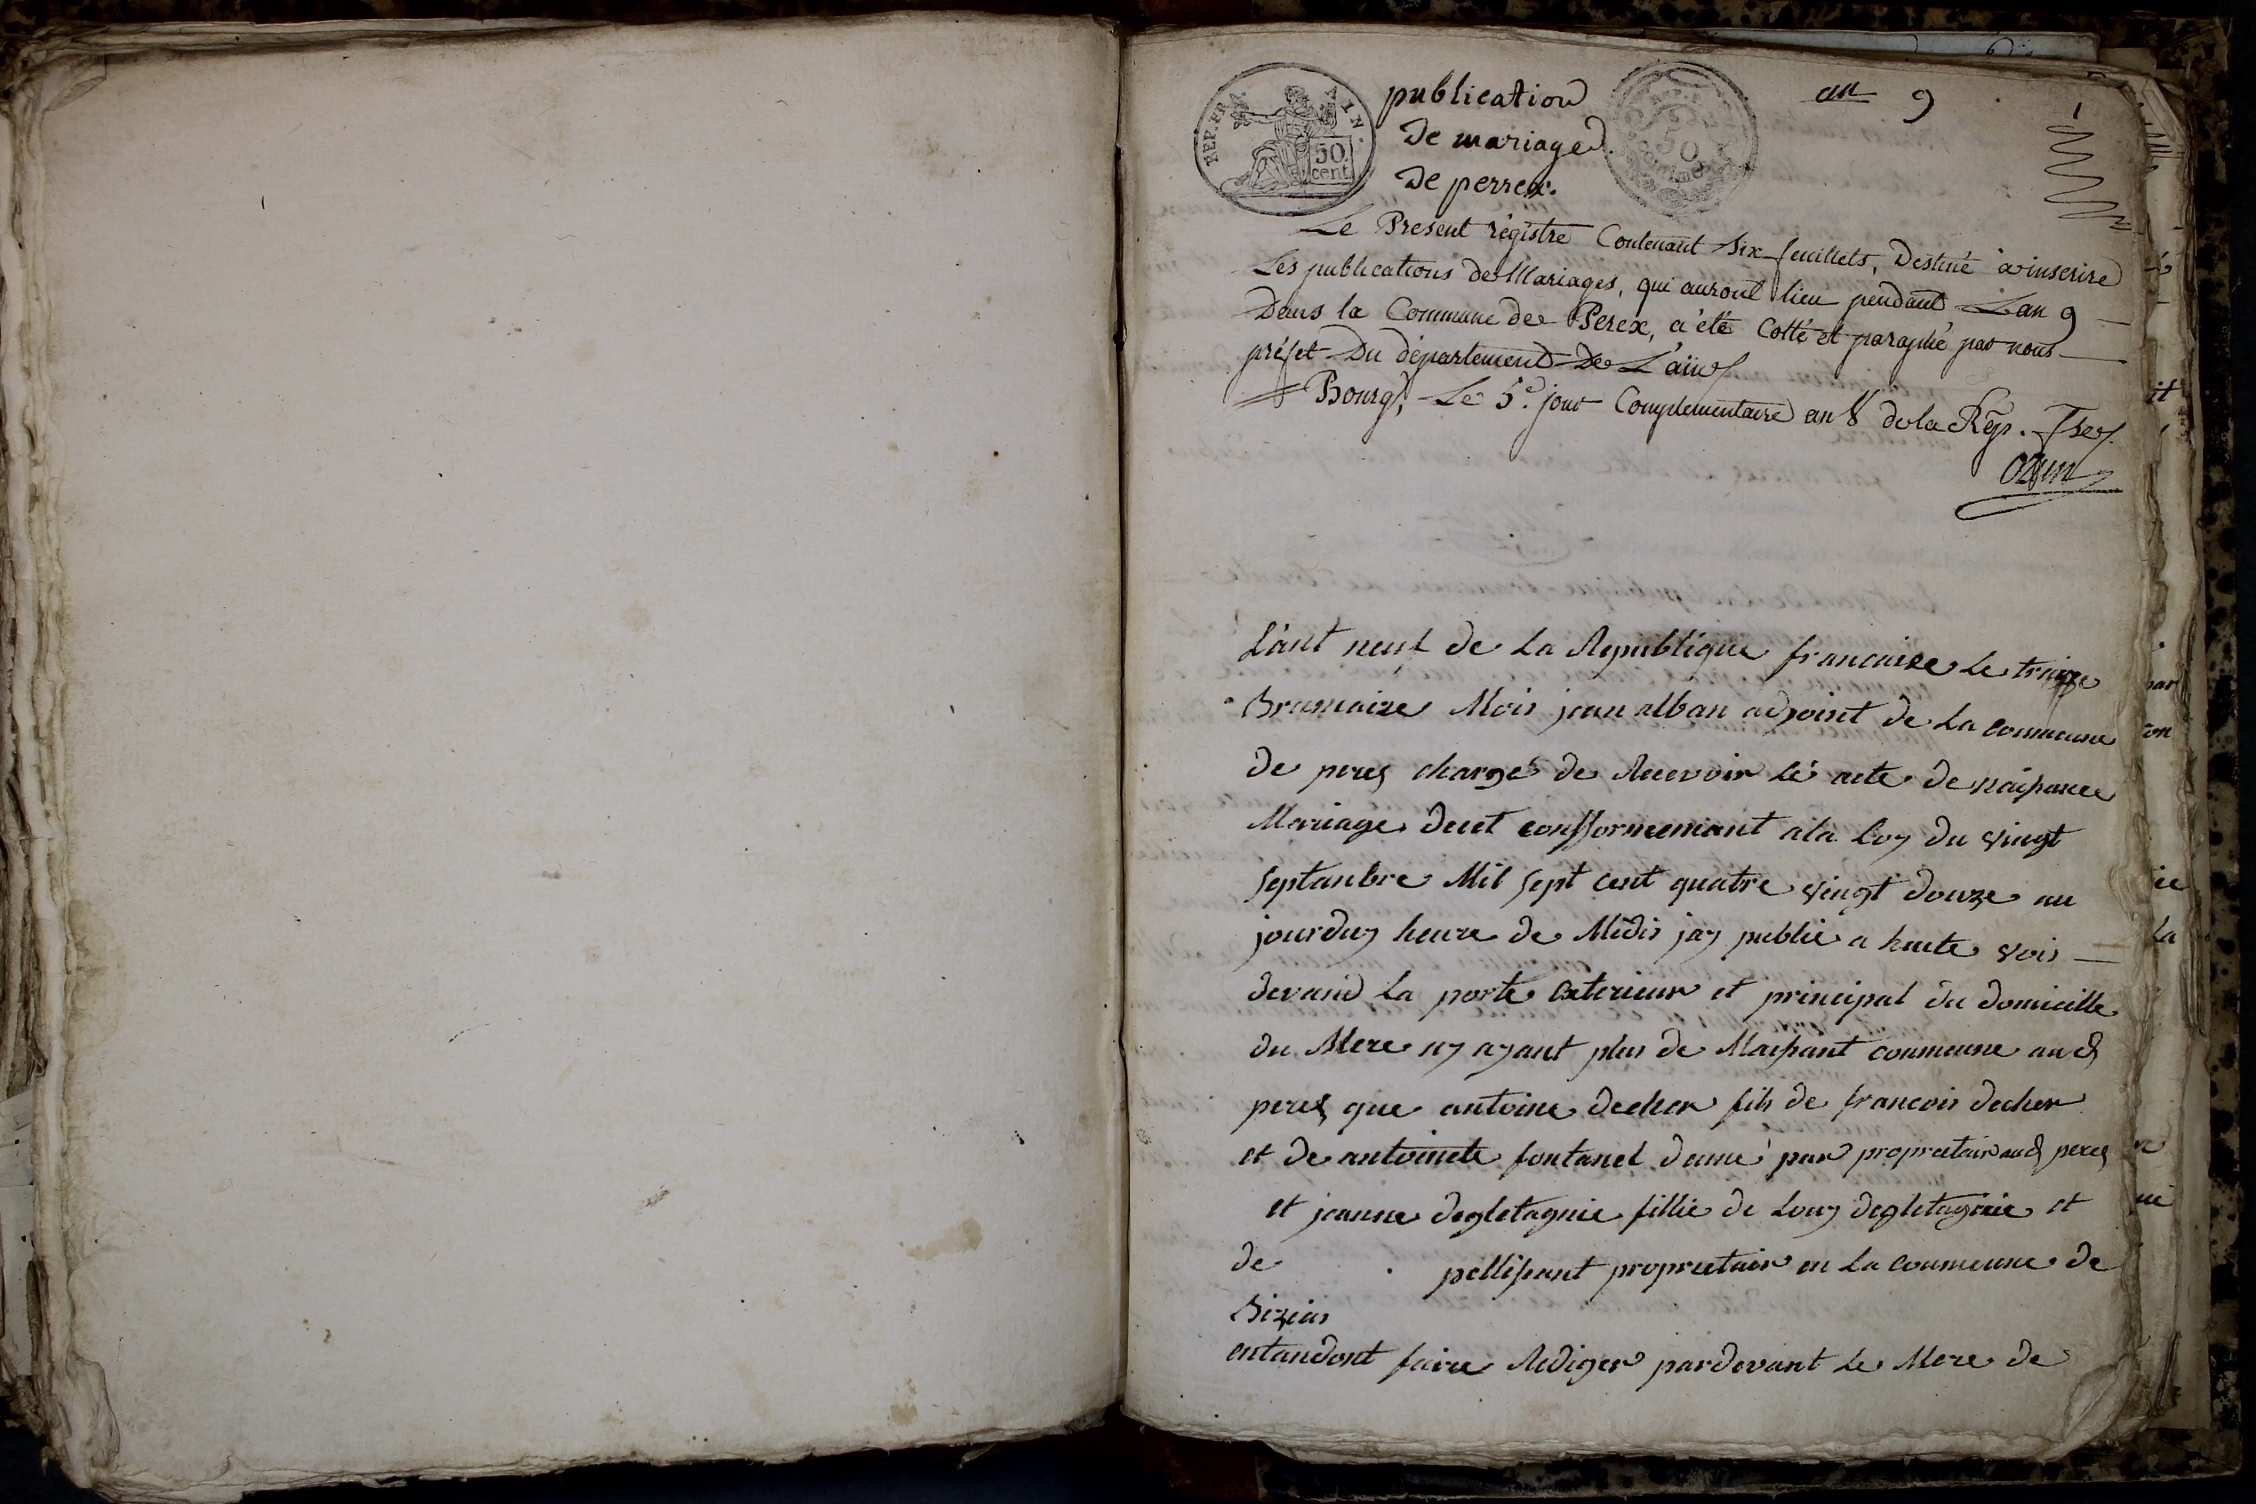 REP. FRA. AIN.
50 cent
publication
de mariage
de perrex.
50
an 9
1
Le Present régistre Contenant Six feuillets, Destiné à inscrire
Les publications de Mariages, qui auront lieu pendant L'an 9
Dans la Commune de Perex, a été Cotté et paraphé par nous
préfet Du département De L'ain
Bourg, Le 5e. jour Complementaire an 8 de la Rep. fse.
Ozun
L'ant neuf de La Republique francaise le traize
Brumaire Mois jean alban adjoint de La commeune
de perex chargé de Recevoir lé acte de naissance
Mariage decet conformement a la loy du vingt
septanbre Mil sept cent quatre vingt douze au
jourduy heure de Midis jay publié a haute vois
devand La porte exterieur et principal du domicille
du Mere ny ayant plus de Maissant coumeune aud
perex que antoine decher fils de francois decher
et de antoinete fontanel demé par proprietair aud perex
et jeanne degletagnie fillie de Louy degletagnie et
de pellissant proprietair en La coumeune de
Biziat
entandont faire Rediger pardevant Le Mere de